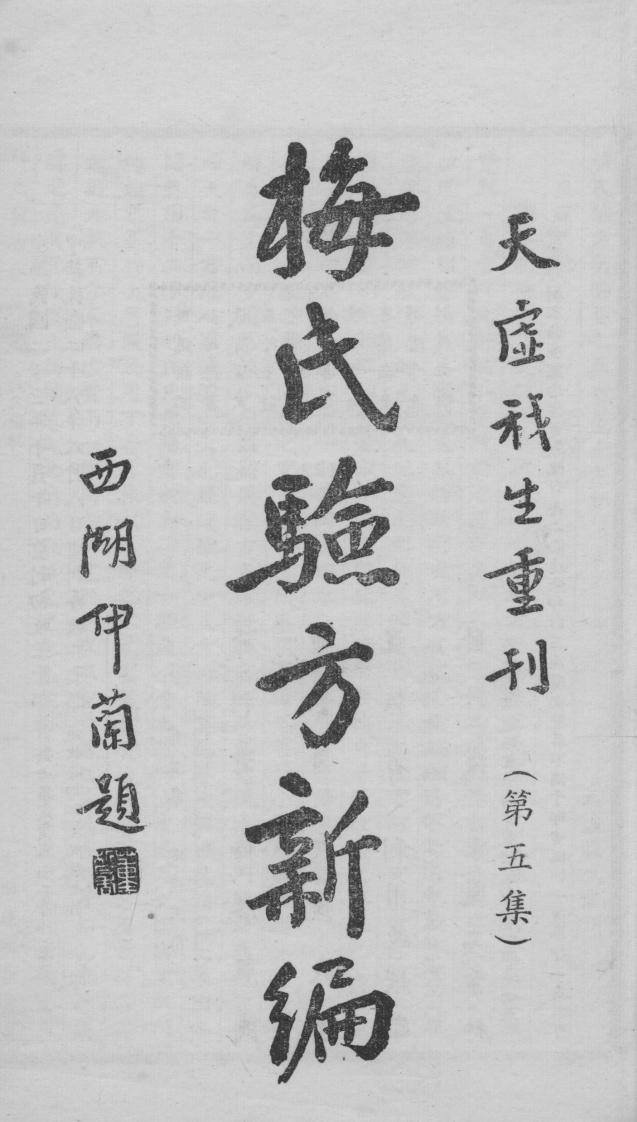 天虛我生重刊
(第五集)
梅氏驗方新編
西湖伊蘭題